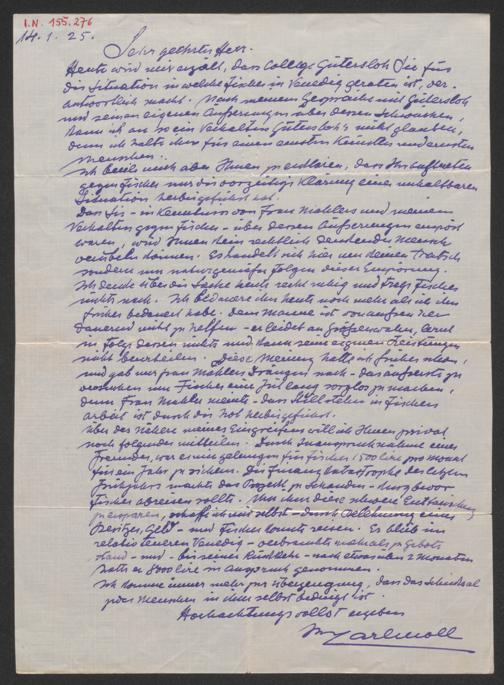 I.N. 155.276
14.1.25.
Sehr geehrter Herr.
Heute wird mir erzählt, dass College Gütersloh Sie für
die Situation in welche Fischer in Venedig geraten ist, ver-
antwortlich macht. Nach meinem Gespräche mit Gütersloh
und seinen eigenen Äusserungen über dessen Schwanken,
kann ich an so ein Verhalten Gütersloh's nicht glauben,
denn ich halte ihn für einen ernsten Künstler und ernsten
Menschen.
Ich beeile mich aber Ihnen zu erklären, dass Ihr Auftreten
gegen Fischer nur die vorzeitige Klärung einer unhaltbaren
Situation, herbeigeführt hat.
Das Sie - in Kenntniss von Frau Mahlers und meinem
Verhalten gegen Fischer - über dessen Äusserungen empört
waren, wird Ihnen kein rechtlich denkender Mensch
verübeln können. Es handelt sich hier um keinen Tratsch
sondern um naturgemässe Folgen dieser Empörung.
Ich denke über die Sache heute recht ruhig und trage Fischer
nichts nach. Ich bedauere ihn heute noch mehr als ich ihn
früher bedauert habe. Dem Manne ist von aussen her
dauernd nicht zu helfen - er leidet an Grössenwahn, lernt
in Folge dessen nichts und kann seine eigenen Leistungen
nicht beurteilen. Diese Meinung hatte ich früher schon,
und gab nur Frau Mahlers Drängen nach - das äusserste zu
versuchen um Fischer eine Zeit lang sorglos zu machen,
denn Frau Mahler meinte - das Stillstehen in Fischers
Arbeit ist durch die Not herbeigeführt.
Über das Nähere meines Eingreifens will ich Ihnen privat
noch folgendes mitteilen. Durch Inanspruchnahme eines
Freundes, war es mir gelungen für Fischer 1500 lire pro Monat
für ein Jahr zu sichern. Die Finanzkatastrophe des letzten
Frühjahrs machte das Projekt zu Schanden - kurz bevor
Fischer abreisen sollte. Um ihm diese schwere Enttäuschung
zu ersparen, schaffte ich selbst - durch Belehnung eines
Besitzes, Geld - und Fischer konnte reisen. Es blieb im
relativ teueren Venedig - verbrauchte mehr als zu Gebote
stand - und - bis seiner Rückkehr - nach etwas über 2 Monaten
hatte er 8000 lire in Anspruch genommen.
Ich komme immer mehr zur Überzeugung, dass das Schicksal
jedes Menschen in ihm selbst bedingt ist.
Hochachtungsvollst ergeben
Carl Moll